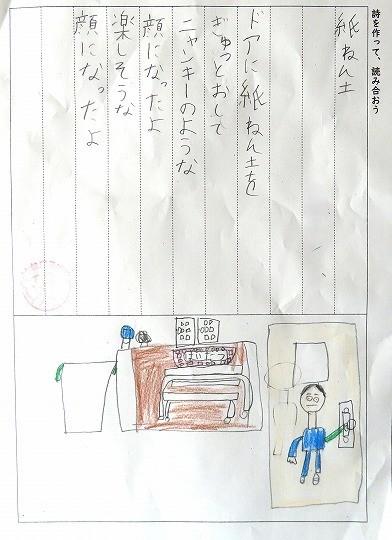 詩を作って、読み合おう
紙ねん土
ドアに紙ねん土を
ぎゅっとおして
ニャンキーのような
顔になったよ
楽しそうな
顔になったよ
はいたつ